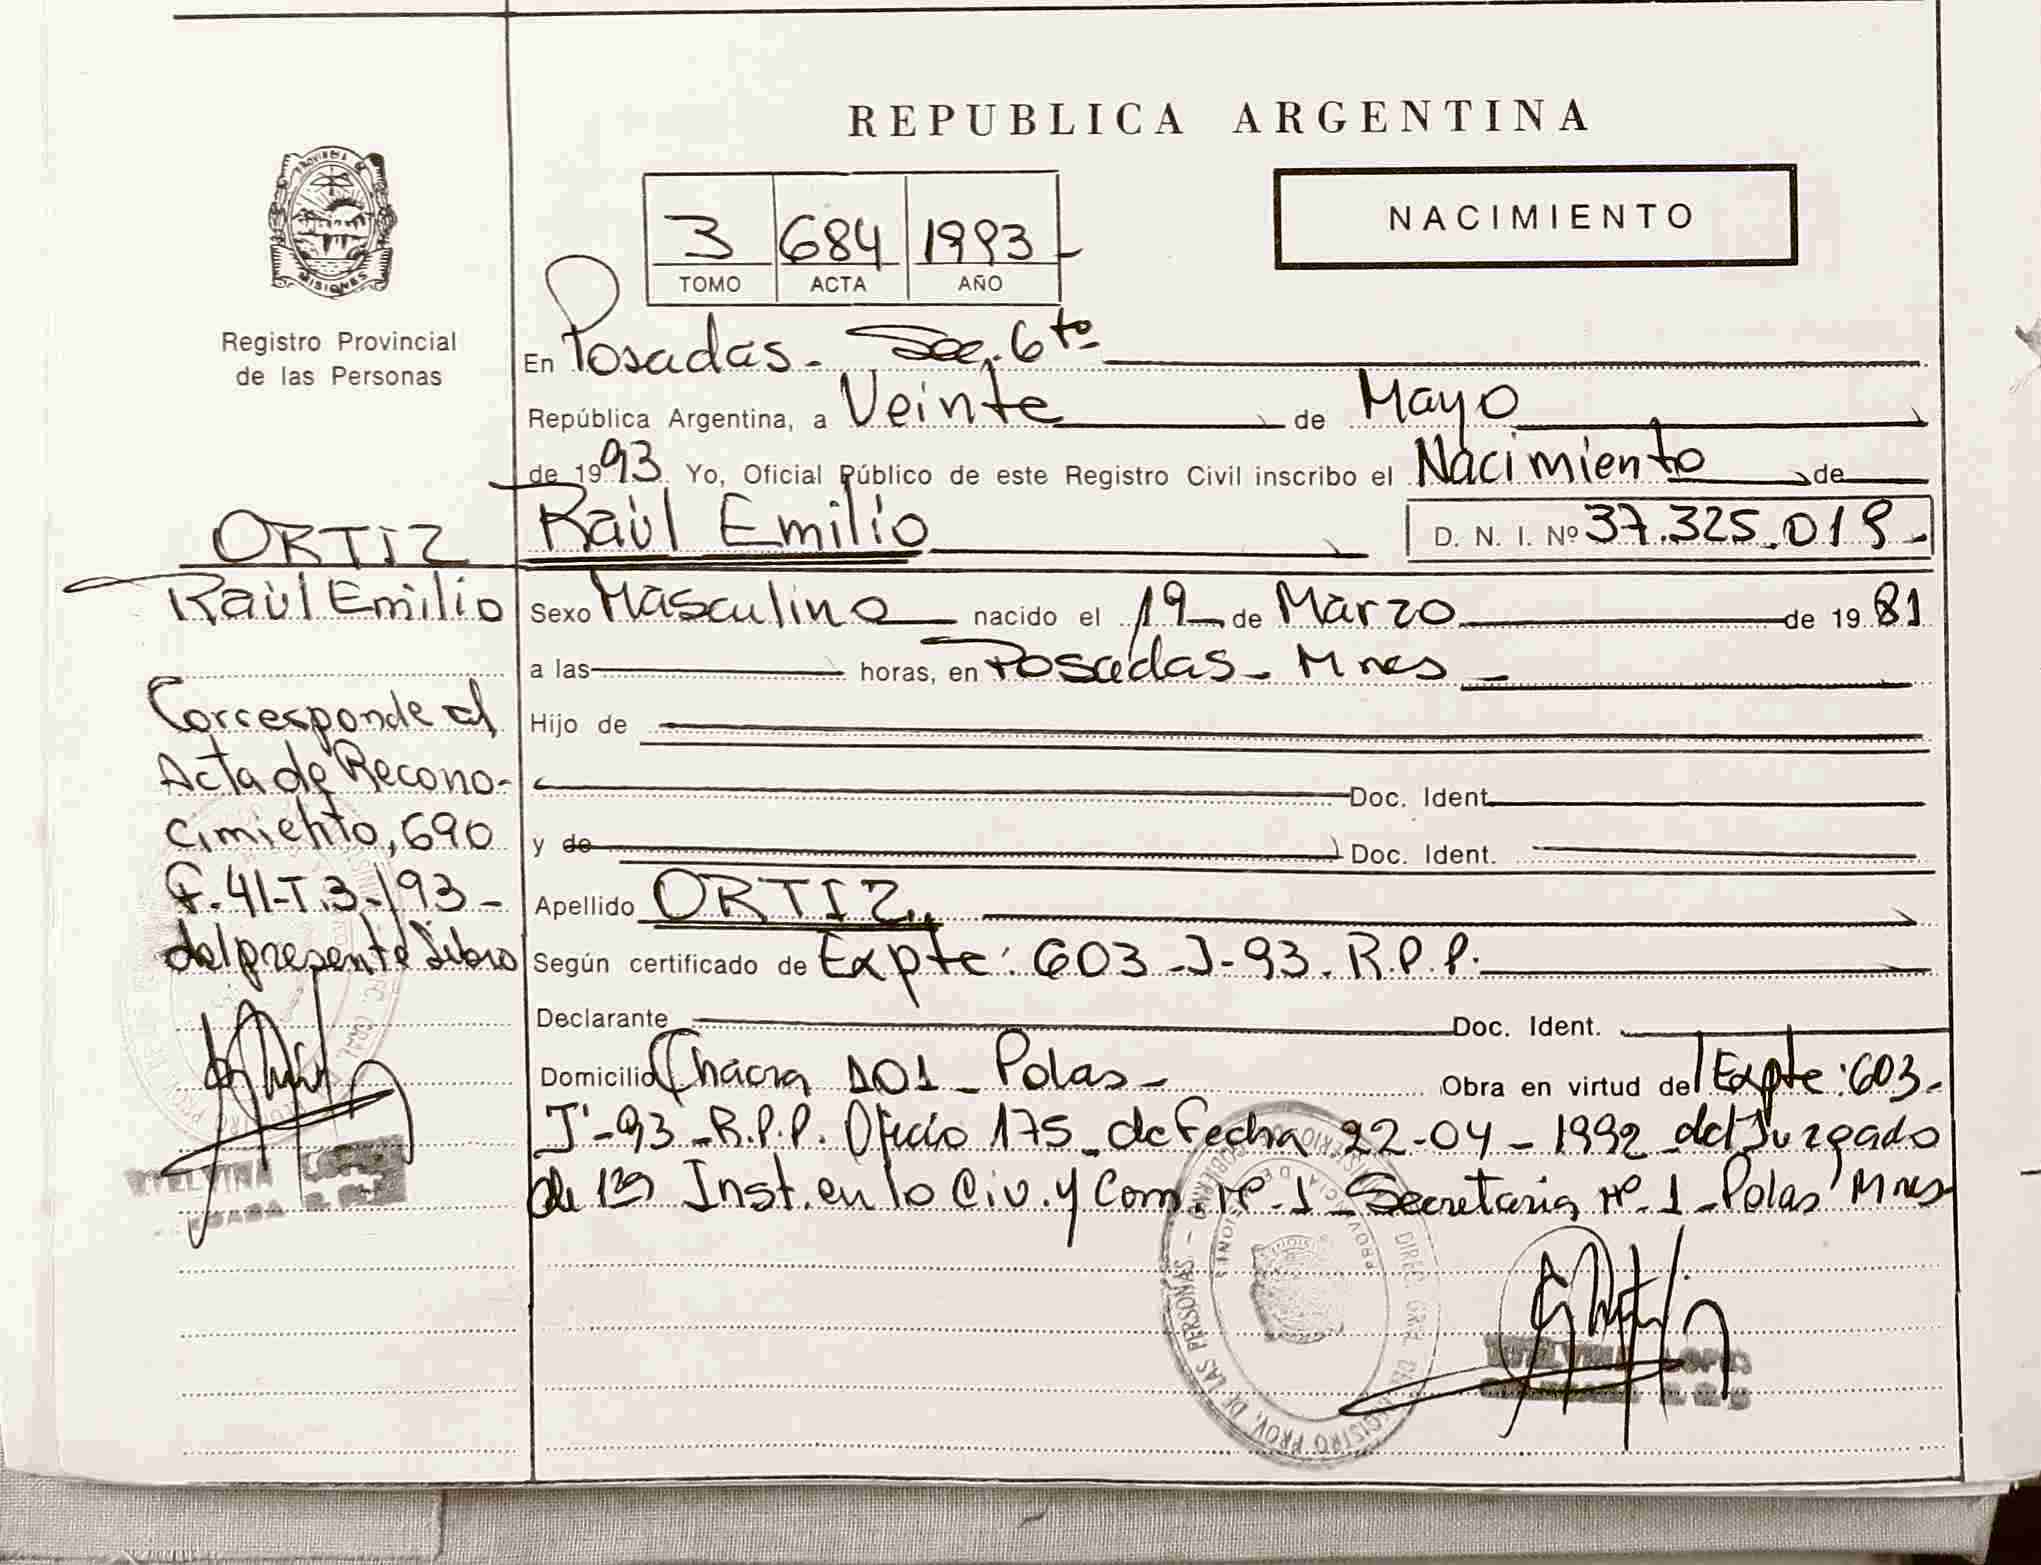 REPUBLICA ARGENTINA
NACIMIENTO
3 684 1993
TOMO ACTA AÑO
PROVINCIA DE MISIONES
Registro Provincial
de las Personas
En Posadas - Sec. 6ta
República Argentina, a Veinte de Mayo
de 1993 Yo, Oficial Público de este Registro Civil inscribo el Nacimiento de
Raúl Emilio D. N. I. Nº 37.325.019.-
Sexo Masculino nacido el 19 de Marzo de 1981
a las horas, en Posadas - Mnes -
Hijo de
Doc. Ident.
y de Doc. Ident.
Apellido ORTIZ
Según certificado de Expte: 603-J-93. R.P.P.
Declarante Doc. Ident.
Domicilio Chacra 101 - Pdas - Obra en virtud del Expte: 603-
J-93-R.P.P. Oficio 175 de fecha 22-04-1992 del Juzgado
de 1ra Inst. en lo Civ. y Com. Nº. 1 - Secretaria Nº. 1 - Pdas Mnes
ORTIZ
Raúl Emilio
Corresponde al
Acta de Recono-
cimiento, 690
F. 41-T.3-/93-
del presente Libro
REGISTRO PROV. DE LAS PERSONAS - GOBIERNO
PROVINCIA DE MISIONES